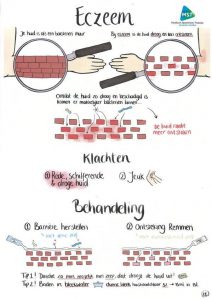 Eczeem
MST
Je huid is als een bakstenen muur
Bij eczeem is de huid droog en kan ontsteken
Omdat de huid zo droog en beschadigd is
komen er makkelijker bacteriën binnen
De huid raakt
meer ontstoken
Klachten
① Rode, schilferende
& droge huid
② Jeuk
Behandeling
① Barrière herstellen
② Ontsteking Remmen
Tip 1! Douche zo min mogelijk met zeep, dat droogt de huid uit
Tip 2! Baden in bleekwater